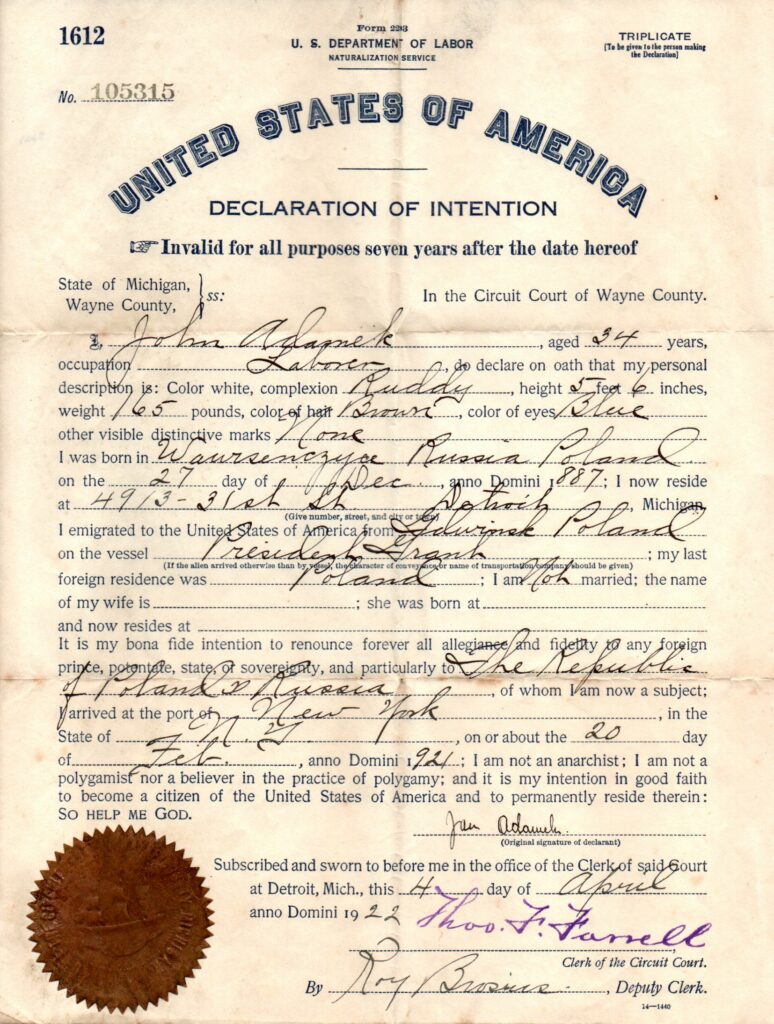 1612
Form 2213
U. S. DEPARTMENT OF LABOR
NATURALIZATION SERVICE
TRIPLICATE
[To be given to the person making
the Declaration]
No. 105315
UNITED STATES OF AMERICA
DECLARATION OF INTENTION
☞ Invalid for all purposes seven years after the date hereof
State of Michigan,
Wayne County, } ss:
In the Circuit Court of Wayne County.
I, John Adamek, aged 34 years,
occupation Laborer, do declare on oath that my personal
description is: Color white, complexion Ruddy, height 5 feet 6 inches,
weight 165 pounds, color of hair Brown, color of eyes Blue
other visible distinctive marks None
I was born in Wawrsenczyce Russia Poland
on the 27 day of Dec., anno Domini 1887; I now reside
at 4913 - 31st St Detroit, Michigan,
(Give number, street, and city or town)
I emigrated to the United States of America from Poland
on the vessel President Grant; my last
(If the alien arrived otherwise than by vessel, the character of conveyance or name of transportation company should be given)
foreign residence was Poland; I am Not married; the name
of my wife is ; she was born at
and now resides at
It is my bona fide intention to renounce forever all allegiance and fidelity to any foreign
prince, potentate, state, or sovereignty, and particularly to The Republic
of Poland or Russia, of whom I am now a subject;
I arrived at the port of New York, in the
State of N. Y., on or about the 20 day
of Feb., anno Domini 1921; I am not an anarchist; I am not a
polygamist nor a believer in the practice of polygamy; and it is my intention in good faith
to become a citizen of the United States of America and to permanently reside therein:
SO HELP ME GOD.
Jan Adamek.
(Original signature of declarant)
Subscribed and sworn to before me in the office of the Clerk of said Court
at Detroit, Mich., this 4 day of April
anno Domini 1922
Thos. F. Farrell
Clerk of the Circuit Court.
By Roy Brosius, Deputy Clerk.
14—1440